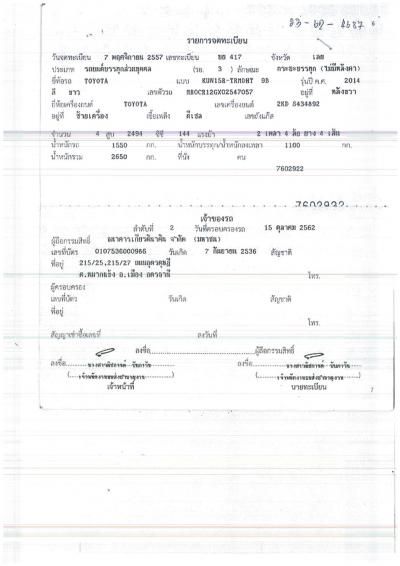 รายการจดทะเบียน
วันจดทะเบียน 7 พฤศจิกายน 2557 เลขทะเบียน 417 จังหวัด เลย
ประเภท รถยนต์บรรทุกส่วนบุคคล (รย. 3 ) ลักษณะ กระบะบรรทุก (ไม่มีหลังคา)
ยี่ห้อรถ TOYOTA แบบ รุ่นปี ค.ศ. 2014
สี ขาว เลขตัวรถ MR0CR12GX02547057 อยู่ที่
ยี่ห้อเครื่องยนต์ TOYOTA เลขเครื่องยนต์ 2KD S434892
อยู่ที่ ซ้ายเครื่อง เชื้อเพลิง ดีเซล เลขถังแก๊ส
จำนวน 4 สูบ 2494 ซีซี 144 แรงม้า 2 เพลา 4 ล้อ ยาง 4 เส้น
น้ำหนักรถ 1550 กก. น้ำหนักบรรทุก/น้ำหนักลงเพลา 1100 กก.
น้ำหนักรวม 2650 กก. ที่นั่ง คน
7602922
7602922
เจ้าของรถ
ลำดับที่ 2 วันที่ครอบครองรถ 15 ตุลาคม 2562
ผู้ถือกรรมสิทธิ์ ธนาคารเกียรตินาคิน จำกัด (มหาชน)
เลขที่บัตร 0107536000986 วันเกิด 7 กันยายน 2536 สัญชาติ
ที่อยู่ 215/25,215/27
ต.หมากแข้ง อ.เมือง อุดรธานี โทร.
ผู้ครอบครอง
เลขที่บัตร วันเกิด สัญชาติ
ที่อยู่
โทร.
สัญญาเช่าซื้อเลขที่ ลงวันที่
ลงชื่อ ผู้ถือกรรมสิทธิ์
ลงชื่อ ลงชื่อ
เจ้าหน้าที่ นายทะเบียน
7